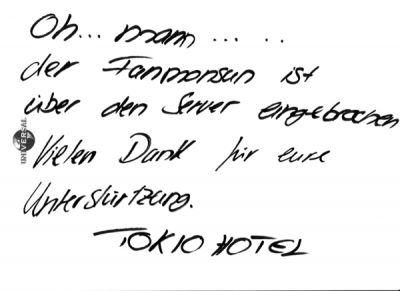 Oh... mann... . .
der Fanmonsun ist
über den Server eingebrochen
Vielen Dank für eure
Unterstürtzung.
TOKIO HOTEL
UNIVERSAL